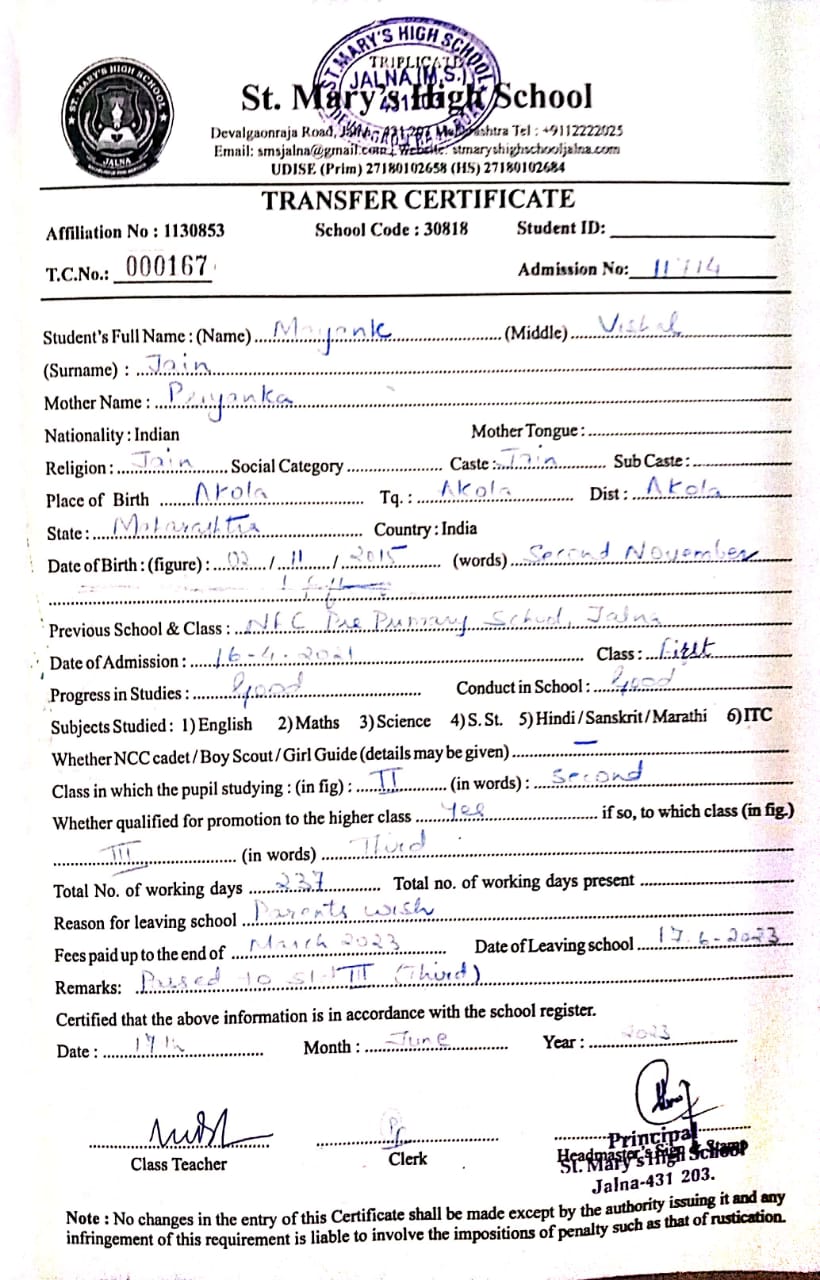 ST. MARY'S HIGH SCHOOL
JALNA
ST. MARY'S HIGH SCHOOL
TRIPLICATE
JALNA (M.S.)
St. Mary's High School
Devalgaonraja Road, Maharashtra Tel : +9112222025
Email: smsjalna@gmail.com | Website: stmaryshighschooljalna.com
UDISE (Prim) 27180102658 (HS) 27180102684
TRANSFER CERTIFICATE
Affiliation No : 1130853 School Code : 30818 Student ID:
T.C.No.: 000167 Admission No: 11714
Student's Full Name : (Name) Mayank (Middle) Vishal
(Surname) : Jain
Mother Name : Priyanka
Nationality : Indian Mother Tongue :
Religion : Jain Social Category Caste : Jain Sub Caste :
Place of Birth Akola Tq. : Akola Dist : Akola
State : Maharashtra Country : India
Date of Birth : (figure) : 02 / 11 / 2015 (words) Second November
Previous School & Class : Pre Primary School, Jalna
Date of Admission : 16-4-2021 Class : First
Progress in Studies : Good Conduct in School : Good
Subjects Studied : 1) English 2) Maths 3) Science 4) S. St. 5) Hindi / Sanskrit / Marathi 6) ITC
Whether NCC cadet / Boy Scout / Girl Guide (details may be given) —
Class in which the pupil studying : (in fig) : II (in words) : Second
Whether qualified for promotion to the higher class Yes if so, to which class (in fig.)
III (in words) Third
Total No. of working days 237 Total no. of working days present
Reason for leaving school Parents wish
Fees paid up to the end of March 2023 Date of Leaving school 17.6-2023
Remarks: to III (Third)
Certified that the above information is in accordance with the school register.
Date : 17th Month : June Year : 2023
Class Teacher Clerk Principal
Headmaster's Sign & Stamp
St. Mary's High School
Jalna-431 203.
Note : No changes in the entry of this Certificate shall be made except by the authority issuing it and any
infringement of this requirement is liable to involve the impositions of penalty such as that of rustication.